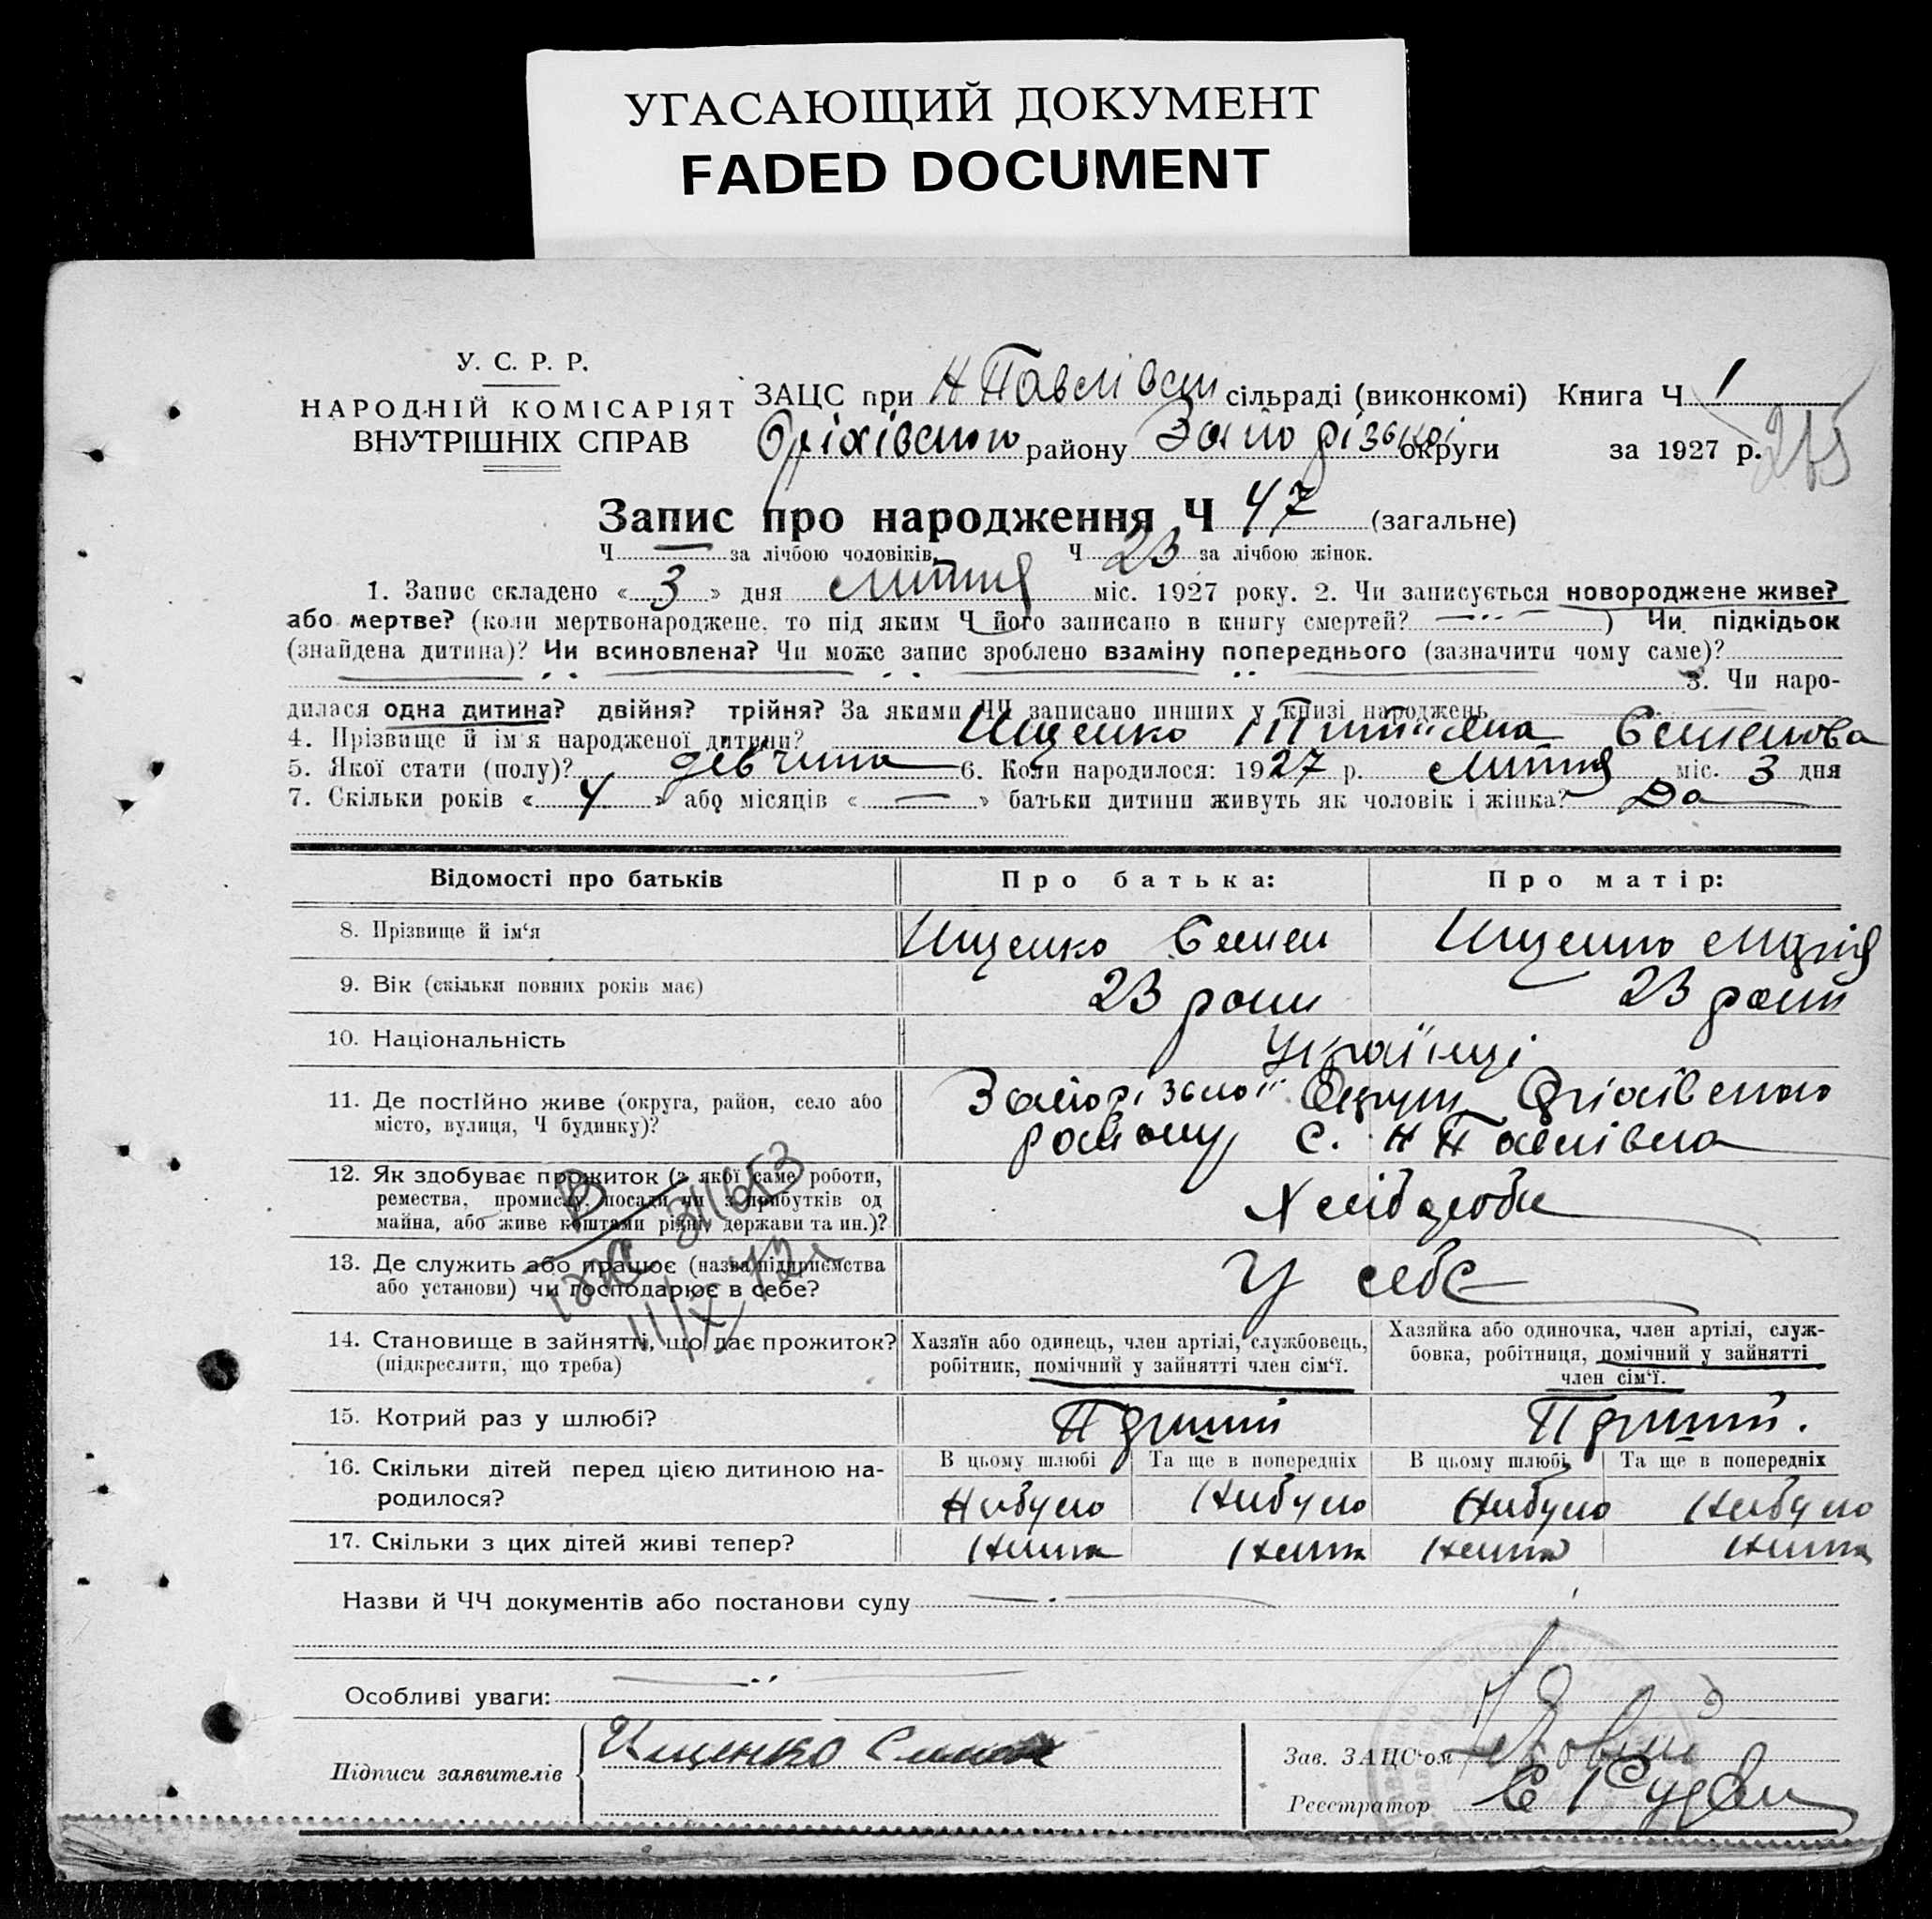 УГАСАЮЩИЙ ДОКУМЕНТ
FADED DOCUMENT
У. С. Р. Р.
НАРОДНІЙ КОМІСАРІЯТ
ВНУТРІШНІХ СПРАВ
ЗАЦС при Н Павлівськ сільраді (виконкомі) Книга Ч 1
Оріхівського району Запорізької округи за 1927 р. 215
Запис про народження Ч 47 (загальне)
Ч — за лічбою чоловіків. Ч 23 за лічбою жінок.
1. Запис складено «3» дня липня міс. 1927 року. 2. Чи записується новороджене живе?
або мертве? (коли мертвонароджене, то під яким Ч його записано в книгу смертей? ) Чи підкідьок
(знайдена дитина)? Чи всиновлена? Чи може запис зроблено взаміну попереднього (зазначити чому саме)?
3. Чи наро-
дилася одна дитина? двійня? трійня? За якими ЧЧ записано инших у книзі народжень
4. Прізвище й ім'я народженої дитини? Ищенко Семенова
5. Якої стати (полу)? дівчина 6. Коли народилося: 1927 р. липня міс. 3 дня
7. Скільки років «4» або місяців «—» батьки дитини живуть як чоловік і жінка? Да
Відомості про батьків Про батька: Про матір:
8. Прізвище й ім‘я Ищенко Семен Ищенко Марія
9. Вік (скільки повних років має) 23 роки 23 роки
10. Національність Українці
11. Де постійно живе (округа, район, село або Запорізької Округи Оріхівського
місто, вулиця, Ч будинку)? району с. Н Павлівка
12. Як здобуває прожиток (з якої саме роботи,
ремества, промислу, посади чи з прибутків од
майна, або живе коштами рідні, держави та ин.)? Хлібороби
13. Де служить або працює (назва підприємства
або установи) чи господарює в себе? У себе
14. Становище в зайнятті, що дає прожиток? Хазяїн або одинець, член артілі, службовець, Хазяйка або одиночка, член артілі, служ-
(підкреслити, що треба) робітник, помічний у зайнятті член сім‘ї. бовка, робітниця, помічний у зайнятті
член сім‘ї.
15. Котрий раз у шлюбі? Перший Перший.
16. Скільки дітей перед цією дитиною на- В цьому шлюбі Та ще в попередніх В цьому шлюбі Та ще в попередніх
родилося? Небуло Небуло Небуло Небуло
17. Скільки з цих дітей живі тепер? Нема Нема Нема Нема
Назви й ЧЧ документів або постанови суду
Особливі уваги:
Підписи заявителів Ищенко Семен
Зав. ЗАЦС‘ом
Реєстратор